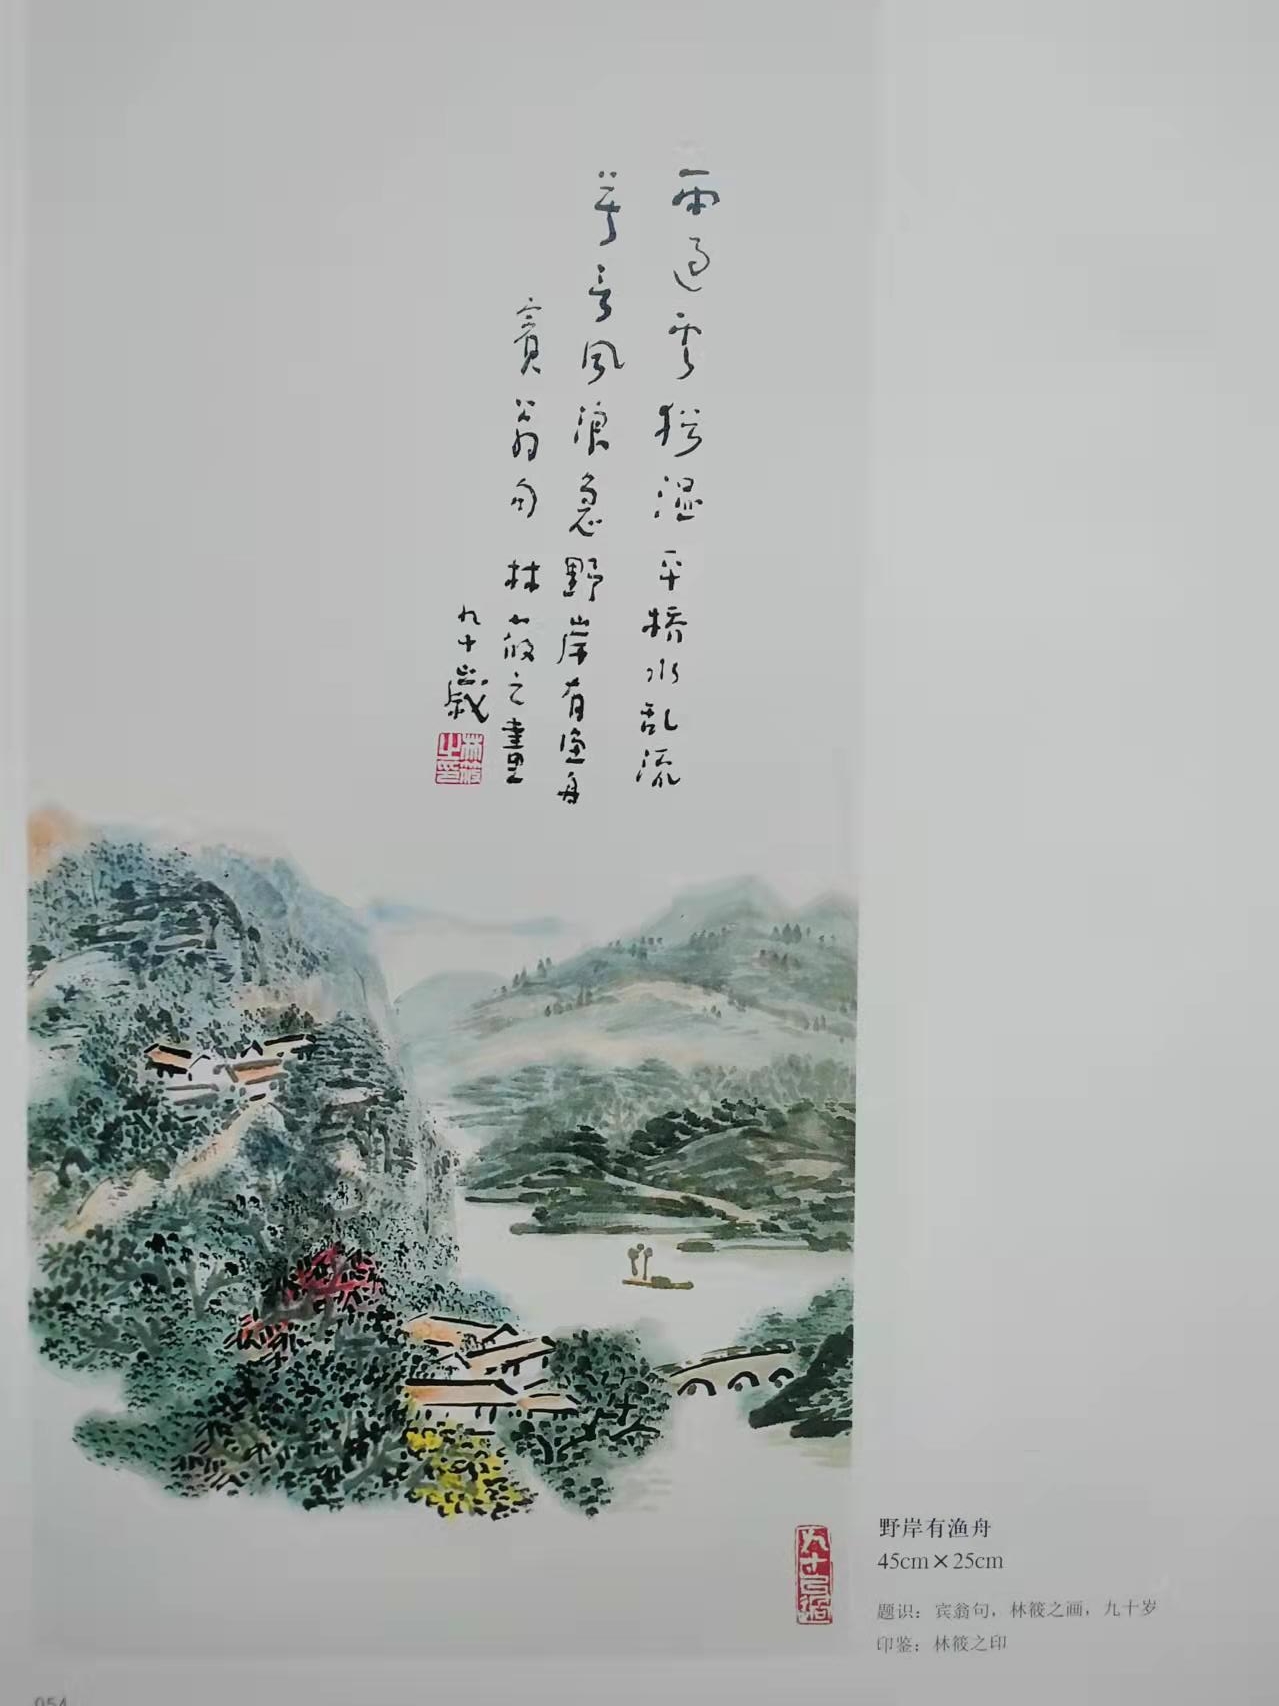 雨過雲猶湿平橋水乱流
言風浪急野岸有漁舟
賓翁句 林筱之畫
九十歲
林筱之印
九十
野岸有渔舟
45cm×25cm
题识：宾翁句，林筱之画，九十岁
印鉴：林筱之印
054